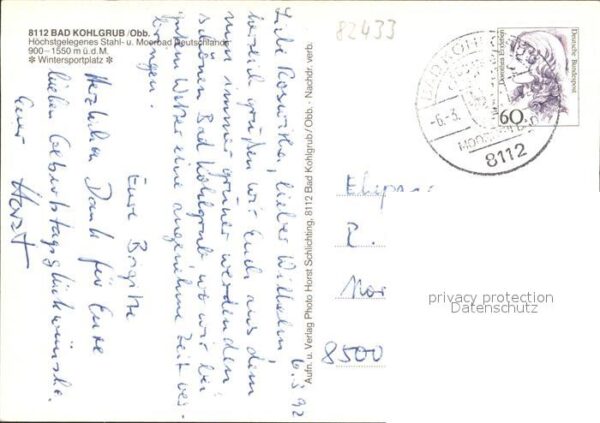 8112 BAD KOHLGRUB/Obb.
Höchstgelegenes Stahl- u. Moorbad Deutschlands
900 – 1550 m ü.d.M.
✻ Wintersportplatz ✻
82433
6.3.92
Liebe Roswitha, lieber Wilhelm,
herzlich grüßen wir Euch aus dem
nun immer grüner werdenden,
schönen Bad Kohlgrub wo wir bei
gutem Wetter eine angenehme Zeit ver-
bringen.
Eure Brigitte
Herzlichen Dank für Eure
lieben Geburtstagsglückwünsche.
Euer Horst
Aufn. u. Verlag Photo Horst Schlichting, 8112 Bad Kohlgrub/Obb. · Nachdr. verb.
Deutsche Bundespost
Dorothea Erxleben
60
-6.-3.
8112
Ehepaar
8500
privacy protection
Datenschutz